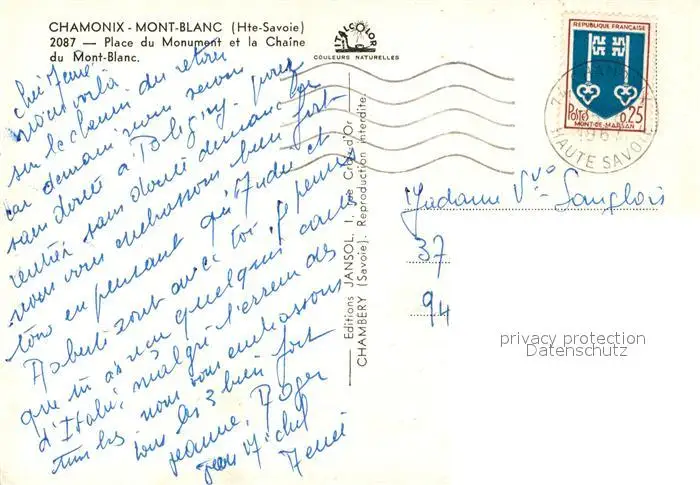 CHAMONIX - MONT-BLANC (Hte-Savoie)
2087 — Place du Monument et la Chaîne
du Mont-Blanc.
ITALCOLOR
COULEURS NATURELLES
nous voilà
sur le chemin du retour
car demain nous serons
sans doute à Poligny
rentrés sans doute dimanche
nous vous embrassons bien fort
tous en pensant qu'Andre et
sont avec toi je pense
que tu as eu quelques cartes
d'Italie, malgré l'erreur des
timbres nous vous embrassons
tous les 3 bien fort
Jeanne, Roger
Michel
Editions JANSOL, 1, rue Croix-d'Or
CHAMBERY (Savoie). Reproduction interdite.
REPUBLIQUE FRANÇAISE
POSTES 0,25
MONT-DE-MARSAN
CHAMONIX
HAUTE SAVOIE
Madame Vve Langlois
37
94
privacy protection
Datenschutz